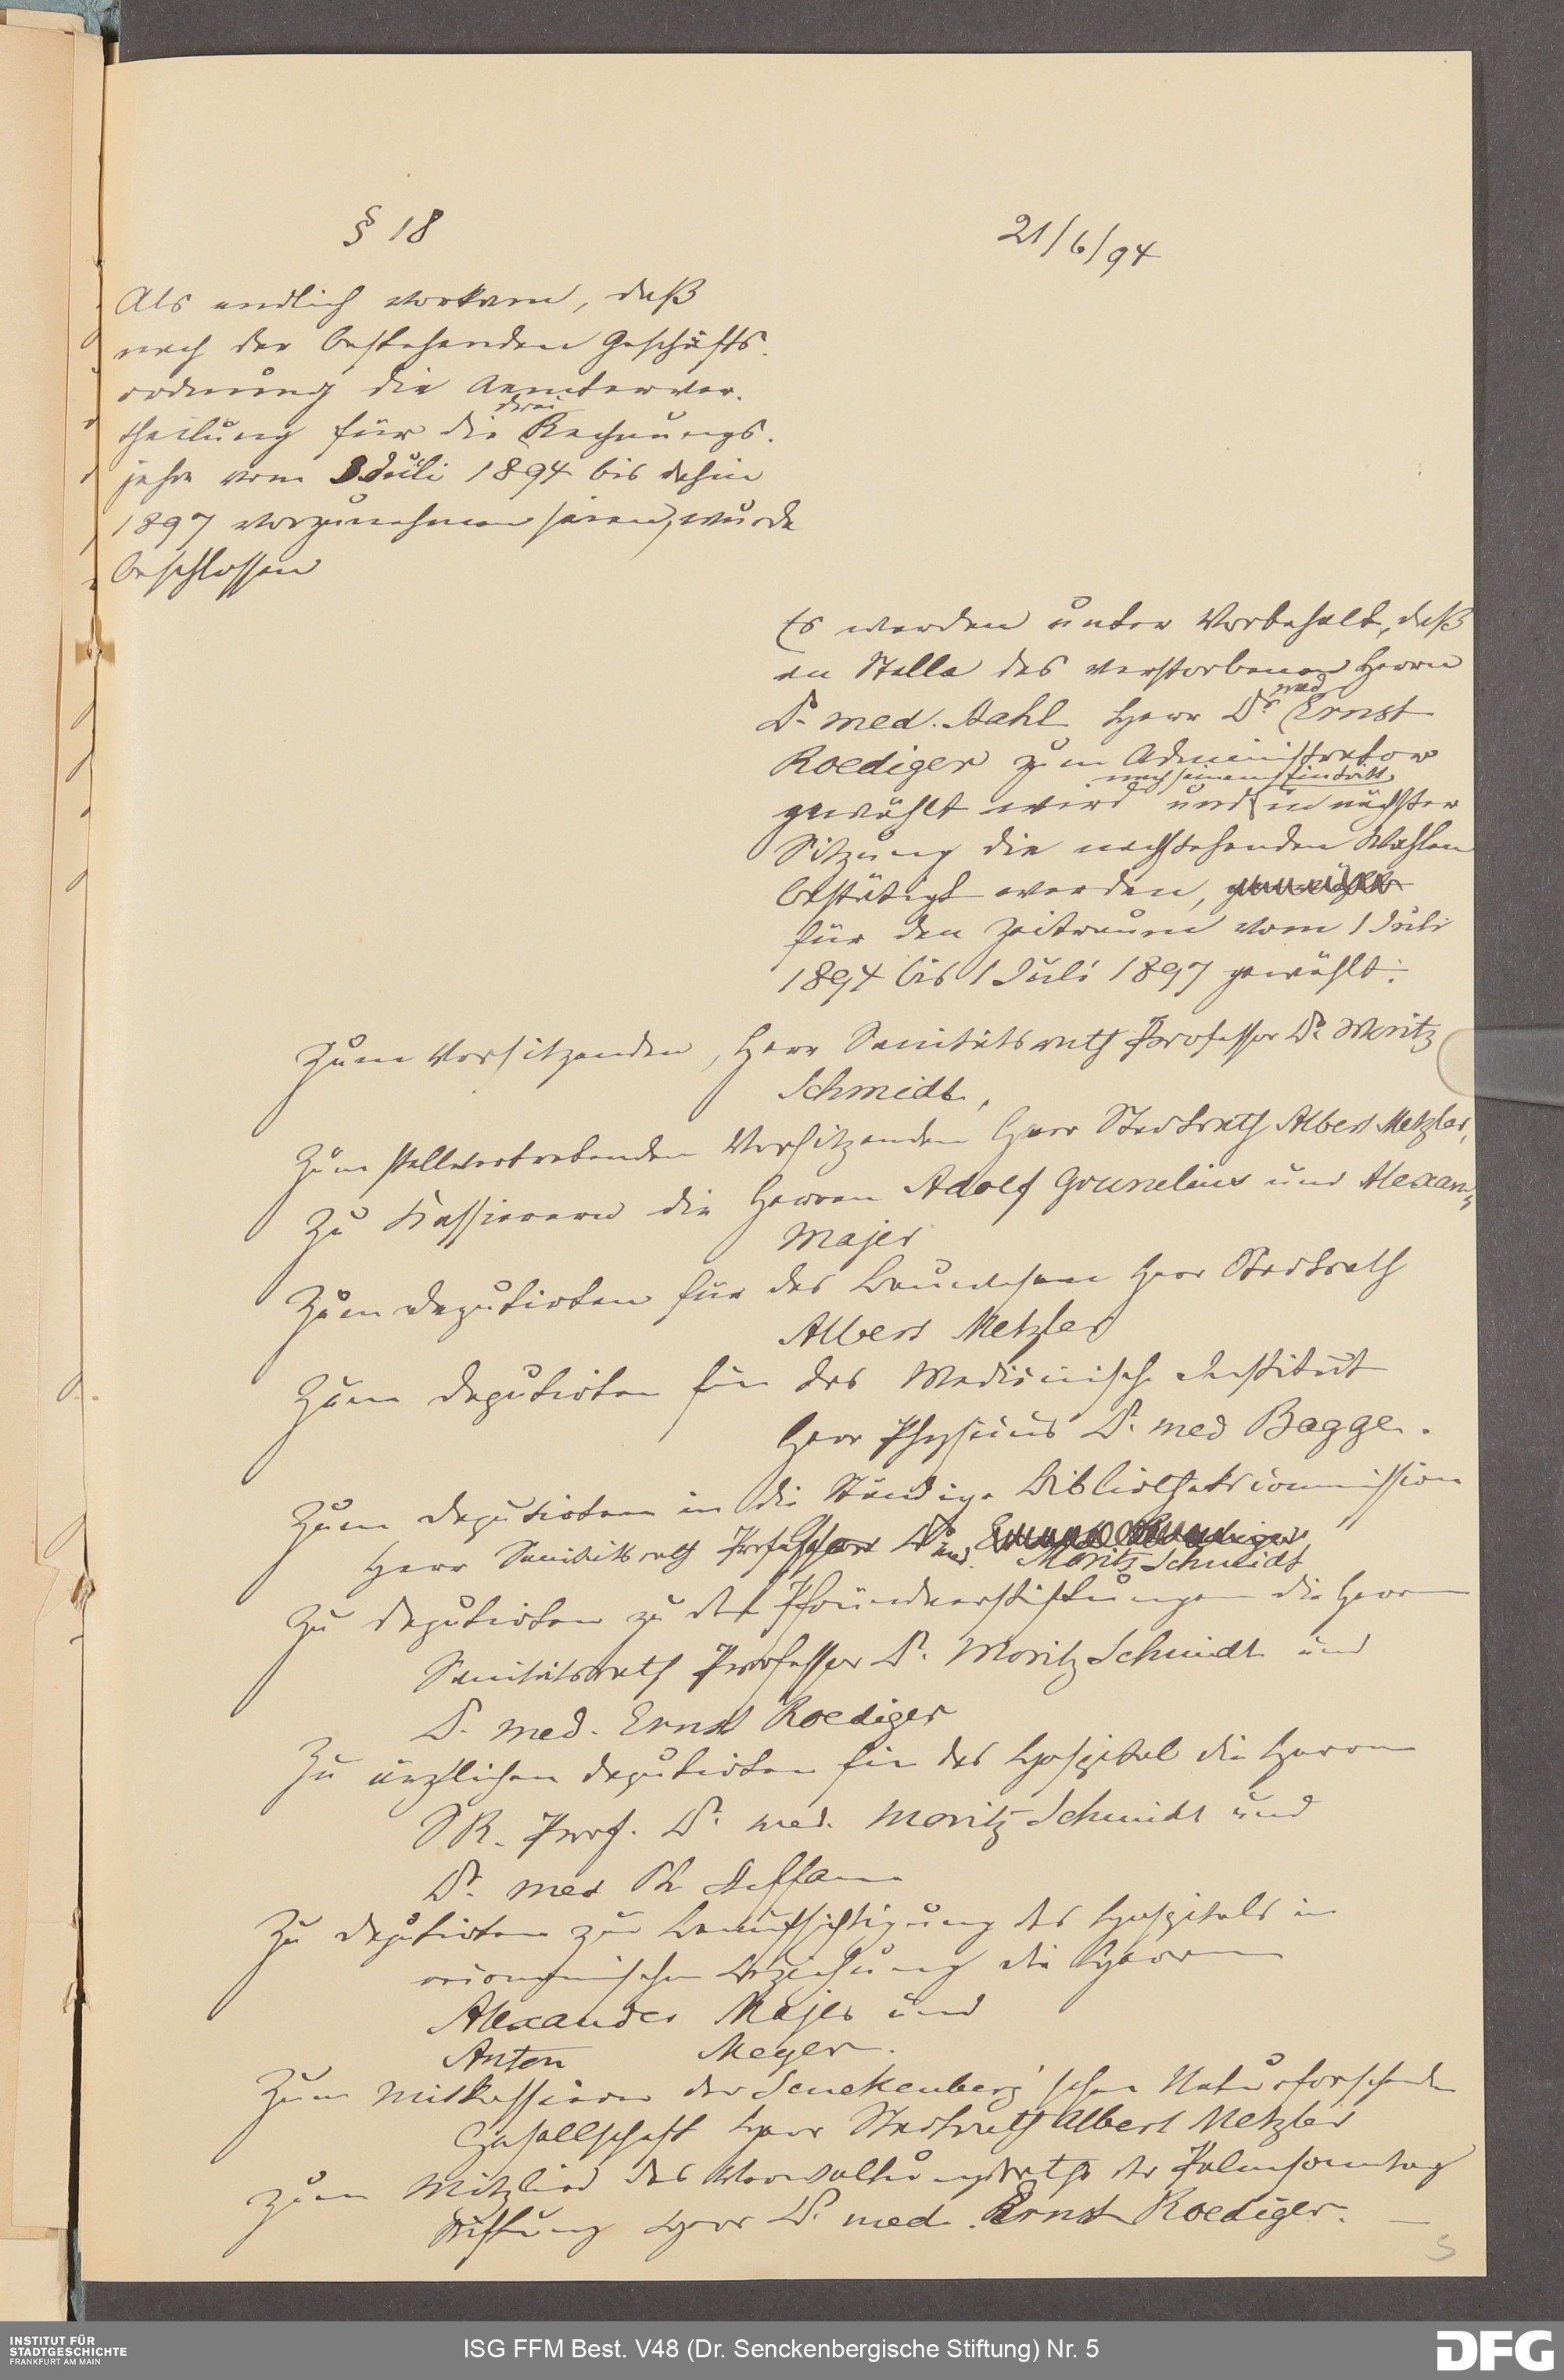 § 18
21/6/94
Als endlich vorkam, daß
nach der bestehenden Geschäfts-
ordnung die Aemterver-
drei
theilung für die Rechnungs-
jahre vom 1 Juli 1894 bis dahin
1897 vorzunehmen seien, wurde
beschlossen
Es werden unter Vorbehalt, daß
an Stelle des verstorbenen Herrn
med
Dr. med. Stahl Herr Dr. Ernst
Roediger zum Administrator
nach seinem Eintritt
gewählt wird und in nächster
Sitzung die nachstehenden Wahlen
bestätigt werden,
für den Zeitraum vom 1 Juli
1894 bis 1 Juli 1897 gewählt:
Zum Vorsitzenden, Herr Sanitätsrath Professor Dr. Moritz
Schmidt,
Zum stellvertretenden Vorsitzenden Herr Stadtrath Albert Metzler,
Zu Kassierern die Herren Adolf Grunelius und Alexan-
Majer
Zum Deputirten für das Bauwesen Herr Stadtrath
Albert Metzler
Zum Deputirten für das Medicinische Institut
Herr Physicus Dr. med Bagge.
Zum Deputirten in die Ständige Bibliothekcommission
Herr Sanitätsrath Professor Dr. med.
Moritz Schmidt
Zu Deputirten zu den Pfründnerstiftungen die Herren
Sanitätsrath Professor Dr. Moritz Schmidt und
Dr. med. Ernst Roediger
Zu ärztlichen Deputirten für das Hospital die Herren
SR. Prof. Dr. med. Moritz Schmidt und
Dr. med Ph Steffan
Zu Deputirten zur Beaufsichtigung des Hospitals in
oeconomischer Beziehung die Herren
Alexander Majer und
Anton Meyer.
Zum Mitkassierer der Senckenberg'schen Naturforschenden
Gesellschaft Herr Stadtrath Albert Metzler
Zum Mitglied des Verwaltungsraths der Palmsonntag
Stiftung Herr Dr. med. Ernst Roediger. —
5
INSTITUT FÜR
STADTGESCHICHTE
FRANKFURT AM MAIN
ISG FFM Best. V48 (Dr. Senckenbergische Stiftung) Nr. 5
DFG